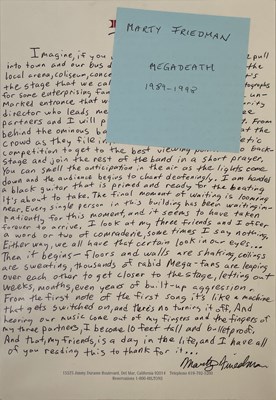 MARTY FRIEDMAN
MEGADEATH
1989-1998
Imagine, if you
into town and our bus
local arena, coliseum, conce
the stage that we cal
for some enterprising fan
marked entrance that w
director who leads me
partners and I will p
behind the ominous ba
crowd as they file in
competition to get to the best viewing
stage and join the rest of the band in a short prayer.
You can smell the anticipation in the air as the lights come
down and the audience begins to chant deafeningly. I am handed
a black guitar that is primed and ready for the beating
it's about to take. The final moment of waiting is looming
near. Every single person in this building has been waiting im-
patiently for this moment, and it seems to have taken
forever to arrive. I look at my three friends and I offer
a word or two of comraderie, some times I say nothing.
Either way, we all have that certain look in our eyes...
Then it begins - floors and walls are shaking, ceilings
are sweating, thousands of rabid Mega-fans are leaping
over each other to get closer to the stage, letting out
weeks, months, even years of built-up aggression.
From the first note of the first song it's like a machine
that gets switched on, and there's no turning it off. And
hearing our music come out of my fingers and the fingers of
my three partners, I become 10 feet tall and bulletproof.
And that, my friends, is a day in the life, and I have all
of you reading this to thank for it...
Marty Friedman